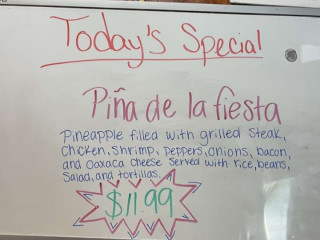 Today's Special
Piña de la fiesta
Pineapple filled with grilled steak,
chicken, shrimp, peppers, onions, bacon,
and Oaxaca cheese served with rice, beans,
Salad, and tortillas.
$11.99